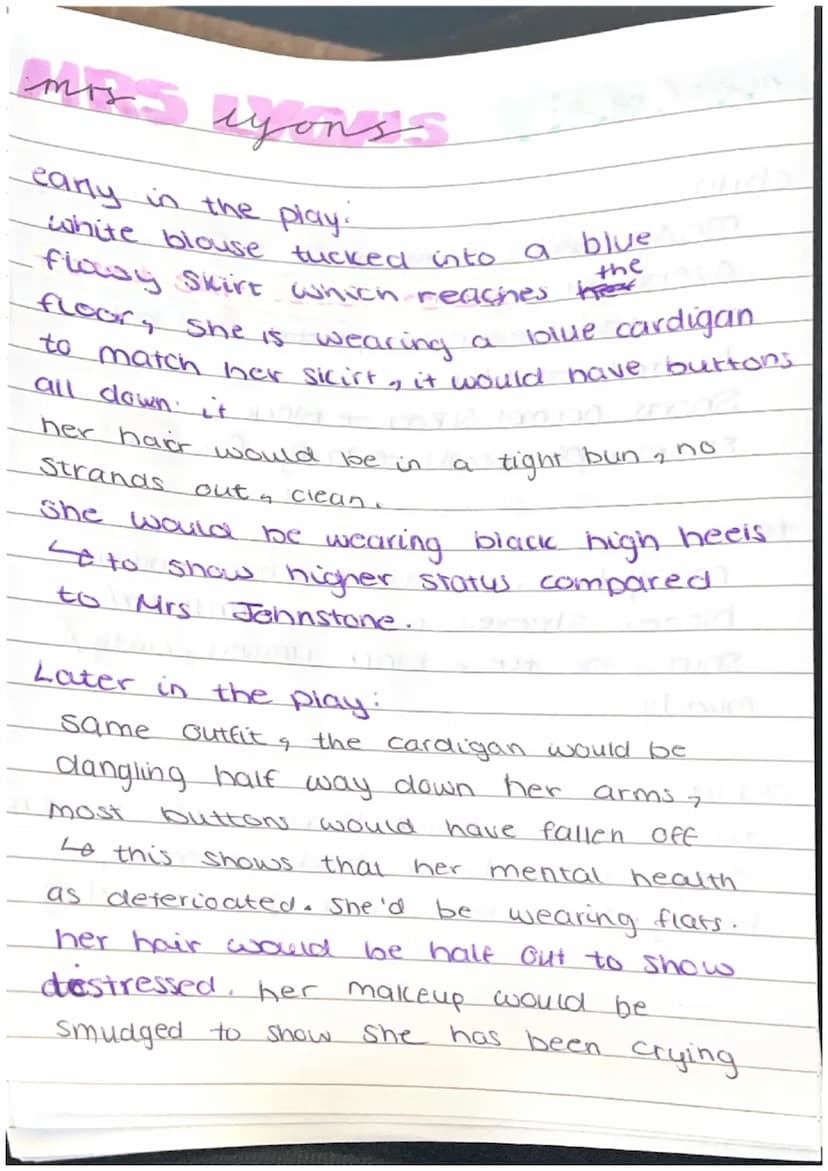 MRS LYONS
mrs lyons
early in the play:
white blouse tucked into a blue
flowsy skirt which reaches the
floor, she is wearing a blue cardigan
to match her skirt, it would have buttons
all down it
her hair would be in a tight bun, no
strands out, clean.
she would be wearing black high heels
↳ to show higher status compared
to Mrs Johnstone.
Later in the play:
same outfit, the cardigan would be
dangling half way down her arms,
most buttons would have fallen off
↳ this shows that her mental health
as detericated. she'd be wearing flats.
her hair would be half out to show
destressed. her makeup would be
smudged to show she has been crying